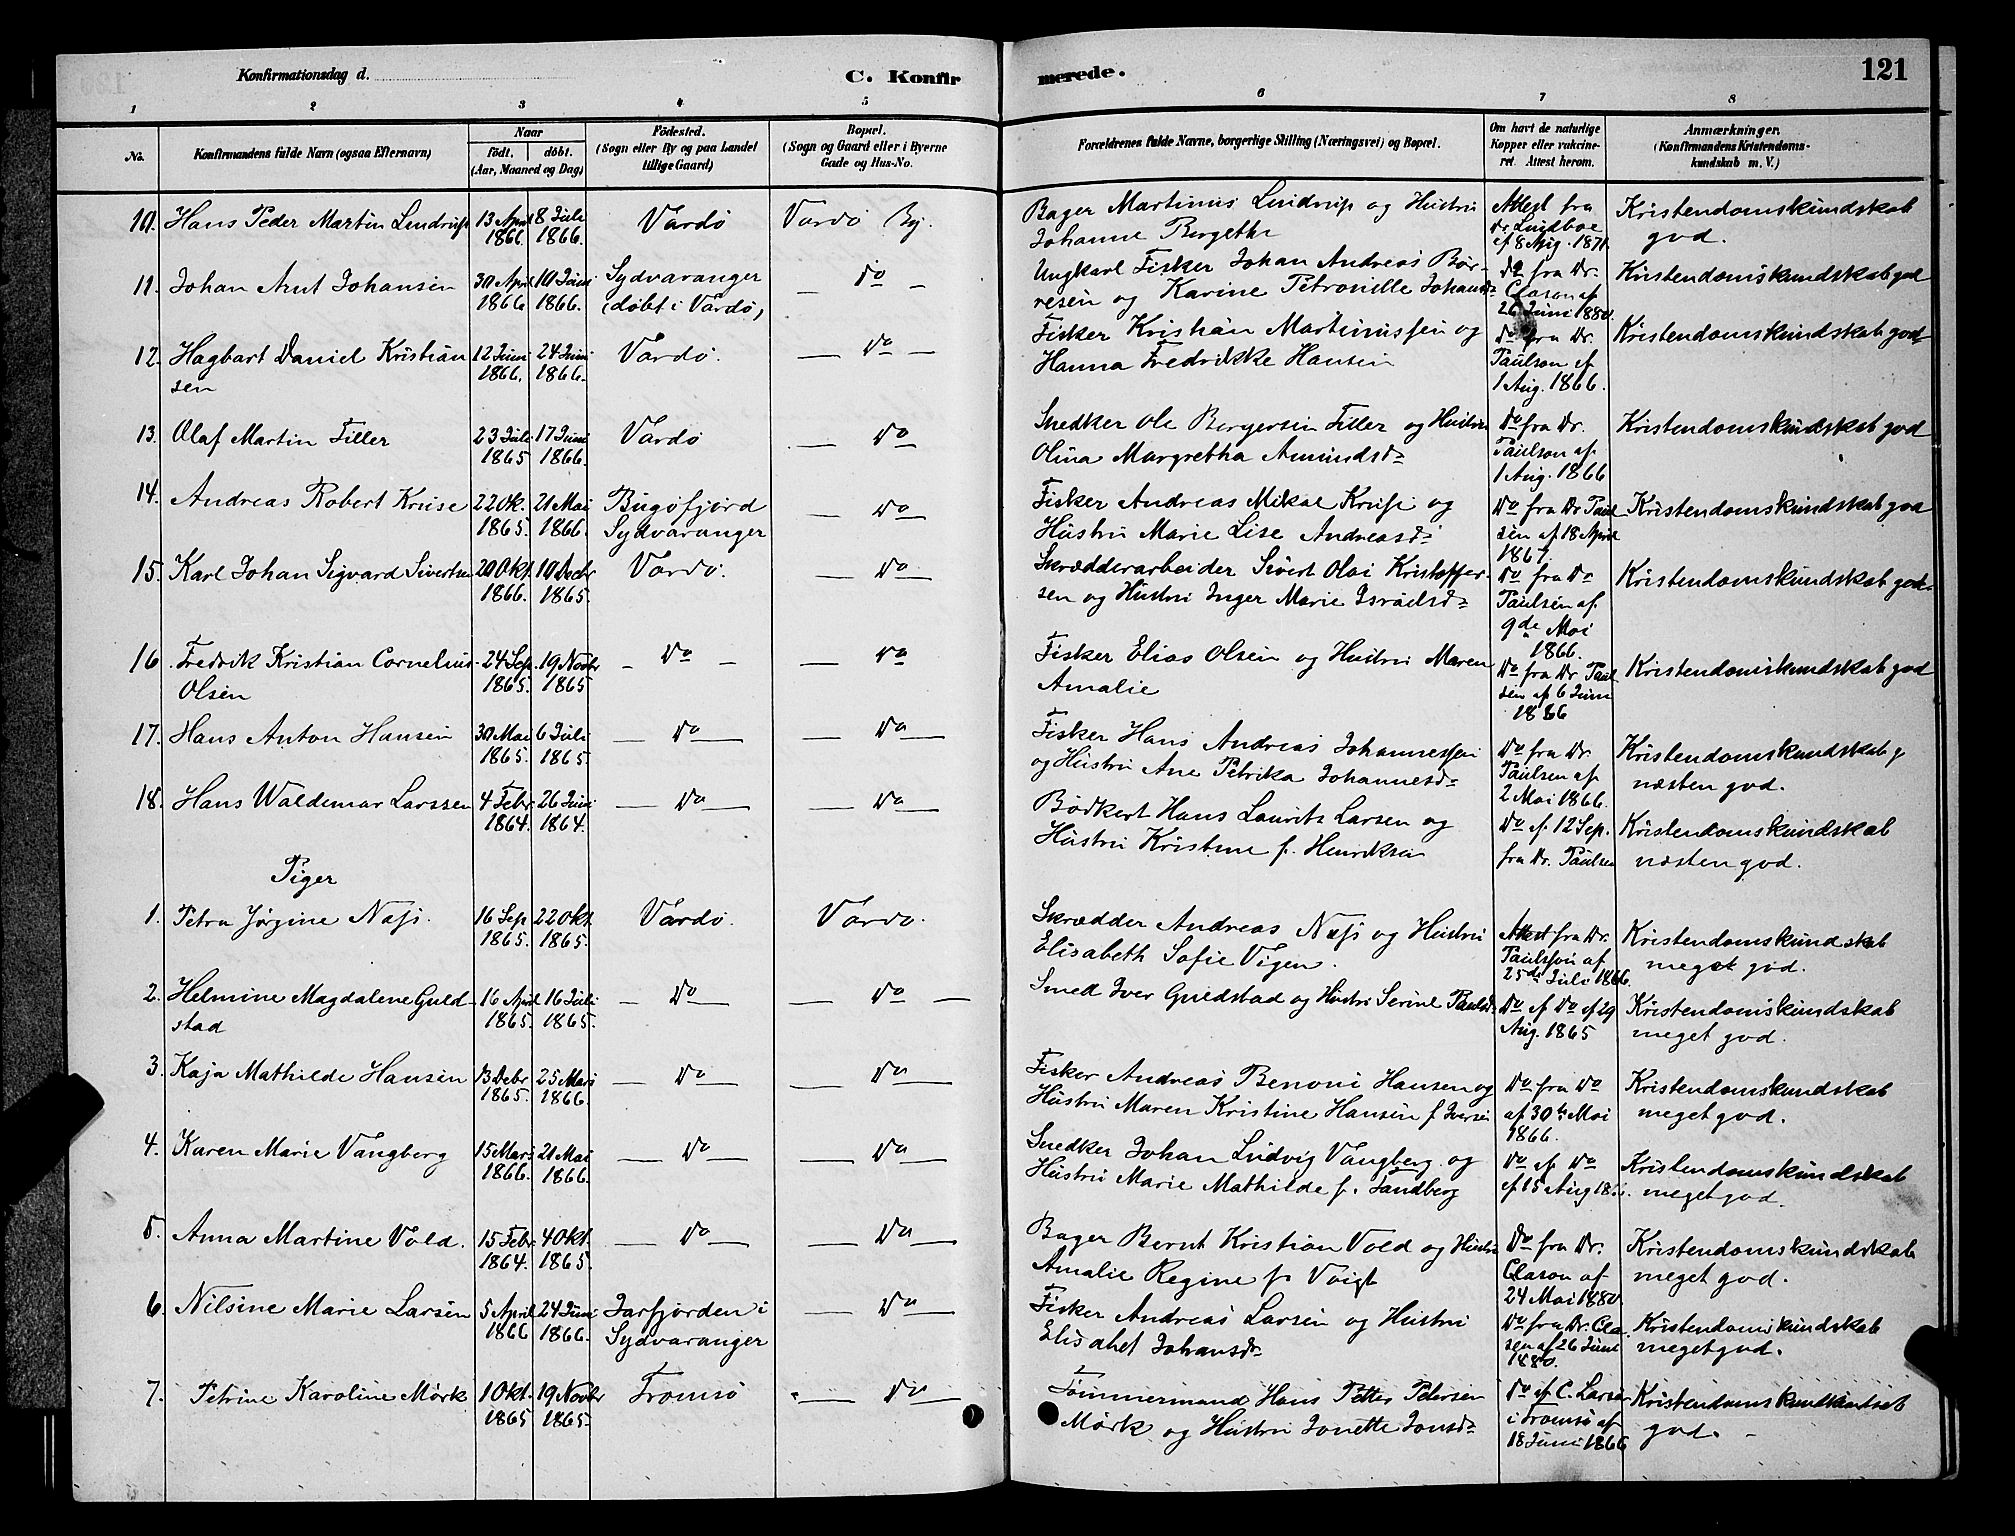 Konfirmationsdag d.
C. Konfirmerede.
121
1 2 3 4 5 6 7 8
No.
Konfirmandens fulde Navn (ogsaa Efternavn)
Naar
født. døbt.
(Aar, Maaned og Dag)
Fødested.
(Sogn eller By og paa Landet
tillige Gaard)
Bopæl.
(Sogn og Gaard eller i Byerne
Gade og Hus-No.
Forældrenes fulde Navne, borgerlige Stilling (Næringsvei) og Bopæl.
Om havt de naturlige
Kopper eller vakcine-
ret. Attest herom.
Anmærkninger.
(Konfirmandens Kristendoms-
kundskab m. V.)
10. Hans Peder Martin Lindrup 13 April 8 Juli Vardø Vardø By. Bager Martinus Lindrup og Hustru Attest fra Kristendomskundskab
1866. 1866. Johanne Bergethe Dr. Lindboe god.
af 8 Aug. 1871.
11. Johan Arnt Johansen 30 April 10 Juni Sydvaranger — Do — Ungkarl Fisker Johan Andreas Bör- Do fra Dr. Kristendomskundskab god
1866 1866. (døbt i Vardø) resen og Karine Petronelle Johansdr Clason af
26 Juni 1880.
12. Hagbart Daniel Kristian 12 Juni 24 Juni Vardø. — Do — Fisker Kristian Martinussen og Do fra Dr. Kristendomskundskab god
sen 1866. 1866. Hanna Fredrikke Hansen Paulson af
1 Aug. 1866.
13. Olaf Martin Tiller 23 Juli 17 Juni Vardø — Do Snedker Ole Bergersen Tiller og Hustru Do fra Dr. Kristendomskundskab god
1865 1866. Olina Margretha Amundsdr Paulson af
1 Aug. 1866
14. Andreas Robert Kruse 22 Ok. 21 Mai Bugøfjord — Do Fisker Andreas Mikal Kruse og Do fra Dr Paul Kristendomskundskab god
1865. 1866. Sydvaranger Hustru Marie Lise Andreasdr sen af 18 April
1867.
15. Karl Johan Sigvard Sivertsen 20 Okt. 10 Decbr Vardø. — Do Skrædderarbeider Sivert Olai Kristoffer- Do fra Do Kristendomskundskab god.
1866. 1865. sen og Hustru Inger Marie Israelsdr Paulsen af
9de Mai
1866.
16. Fredrik Kristian Cornelius 24 Sep. 19 Novbr — Do — — Do Fisker Elias Olsen og Hustru Maren Do fra Dr. Paul Kristendomskundskab god
Olsen 1865. 1865 Amalie sen af 6 Juni
1866
17. Hans Anton Hansen 30 Mai 6 Juli — Do — — Do — Fisker Hans Andreas Johannessen Do fra Dr. Kristendomskundskab
1865. 1865. og Hustru Ane Petrika Johannesdr Paulsen af næsten god.
2 Mai 1866.
18. Hans Waldemar Larssen 4 Febr 26 Juni — Do — — Do — Bødkert Hans Laurits Larsen og Do af 12 Sep. Kristendomskundskab
1864. 1864. Hustru Kristine f. Henriksen fra Dr. Paulsen næsten god.
Piger
1. Petra Jørgine Næss. 16 Sep. 22 Okt. Vardø. Vardø. Skrædder Andreas Næss og Hustru Attest fra Dr. Kristendomskundskab
1865. 1865. Elisabeth Sofie Vigen. Paulsen af meget god.
25de Juli 1866.
2. Helmine Magdalene Guld- 16 April 16 Juli — Do — Do — Smed Iver Guldstad og Hustru Serine Paulsdr Do af Do af 29 Kristendomskundskab
stad 1865. 1865. Aug. 1865 meget god.
3. Kaja Mathilde Hansen 13 Debr 25 Mars — Do — — Do — Fisker Andreas Benoni Hansen og Do fra Do Kristendomskundskab
1865. 1866. Hustru Maren Kristine Hansen f Iversen af 30te Mai meget god.
1866.
4. Karen Marie Vangberg 15 Mars 21 Mai — Do — — Do — Snedker Johan Ludvig Vangberg og Do af Do Kristendomskundskab
1866. 1866. Hustru Marie Mathilde f. Sandberg af 15 Aug meget god.
5. Anna Martine Vold. 15 Febr 4 Okt. — Do — — Do — Bager Bernt Kristian Vold og Hustru Do fra Dr. Kristendomskundskab
1864. 1865. Amalie Regine f. Voigt Clason af meget god.
24 Mai 1880.
6. Nilsine Marie Larsen 5 April 24 Juni Jarfjorden i — Do — Fisker Andreas Larsen og Hustru Do fra Dr. Cla Kristendomskundskab
1866 1866. Sydvaranger Elisabet Johansdr sen af 26 Juni meget god.
1880.
7. Petrine Karoline Mørk 1 Okt. 19 Novbr Tromsø — Do — Tømmermand Hans Petter Petersen Do af C. Larsen Kristendomskundskab
1865 1865. Mørk og Hustru Jonette Jonsdr i Tromsø af god.
18 Juni 1866